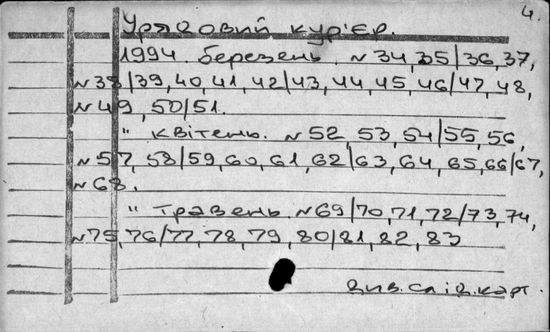 4.
Урядовий кур'єр.
1994. березень. N 34, 35/36, 37,
N 38/39, 40, 41, 42/43, 44, 45, 46/47, 48,
N 49, 50/51.
" квітень. N 52, 53, 54/55, 56,
N 57, 58/59, 60, 61, 62/63, 64, 65, 66/67,
N 68.
" травень. N 69/70, 71, 72/73, 74,
N 75, 76/77, 78, 79, 80/81, 82, 83
див. слід. карт.